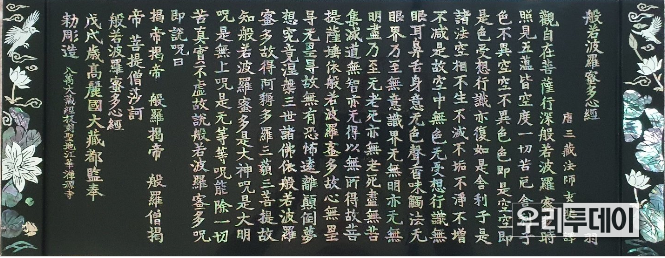 般若波羅蜜多心經 羽
唐三藏法師玄
觀自在菩薩行深般若波羅蜜時
照見五蘊皆空度一切苦厄舍子
色不異空空不異色色即是空空即
是色受想行識亦復如是舍利子是
諸法空相不生不滅不垢不淨不增
不減是故空中無色无受想行識無
眼耳鼻舌身意无色聲香味觸法无
眼界乃至無意識界无無明亦无無
明盡乃至无老死亦無老死盡無苦
集滅道無智亦无得以無所得故菩
提薩埵依般若波羅蜜多故心無罣
导无罣导故無有恐怖遠離顛倒夢
想究竟涅槃三世諸佛依般若波羅
蜜多故得阿耨多羅三藐三菩提故
知般若波羅蜜多是大神呪是大明
呪是無上呪是无等等呪能除一切
苦真實不虛故說般若波羅蜜多呪
即說呪曰
揭帝揭帝 般羅揭帝 般羅僧揭
帝 菩提僧莎訶
般若波羅蜜多心經
戊戌歲高麗國大藏都監奉
勅彫造 八萬大藏經板刻聖地江華禪源寺
우리투데이